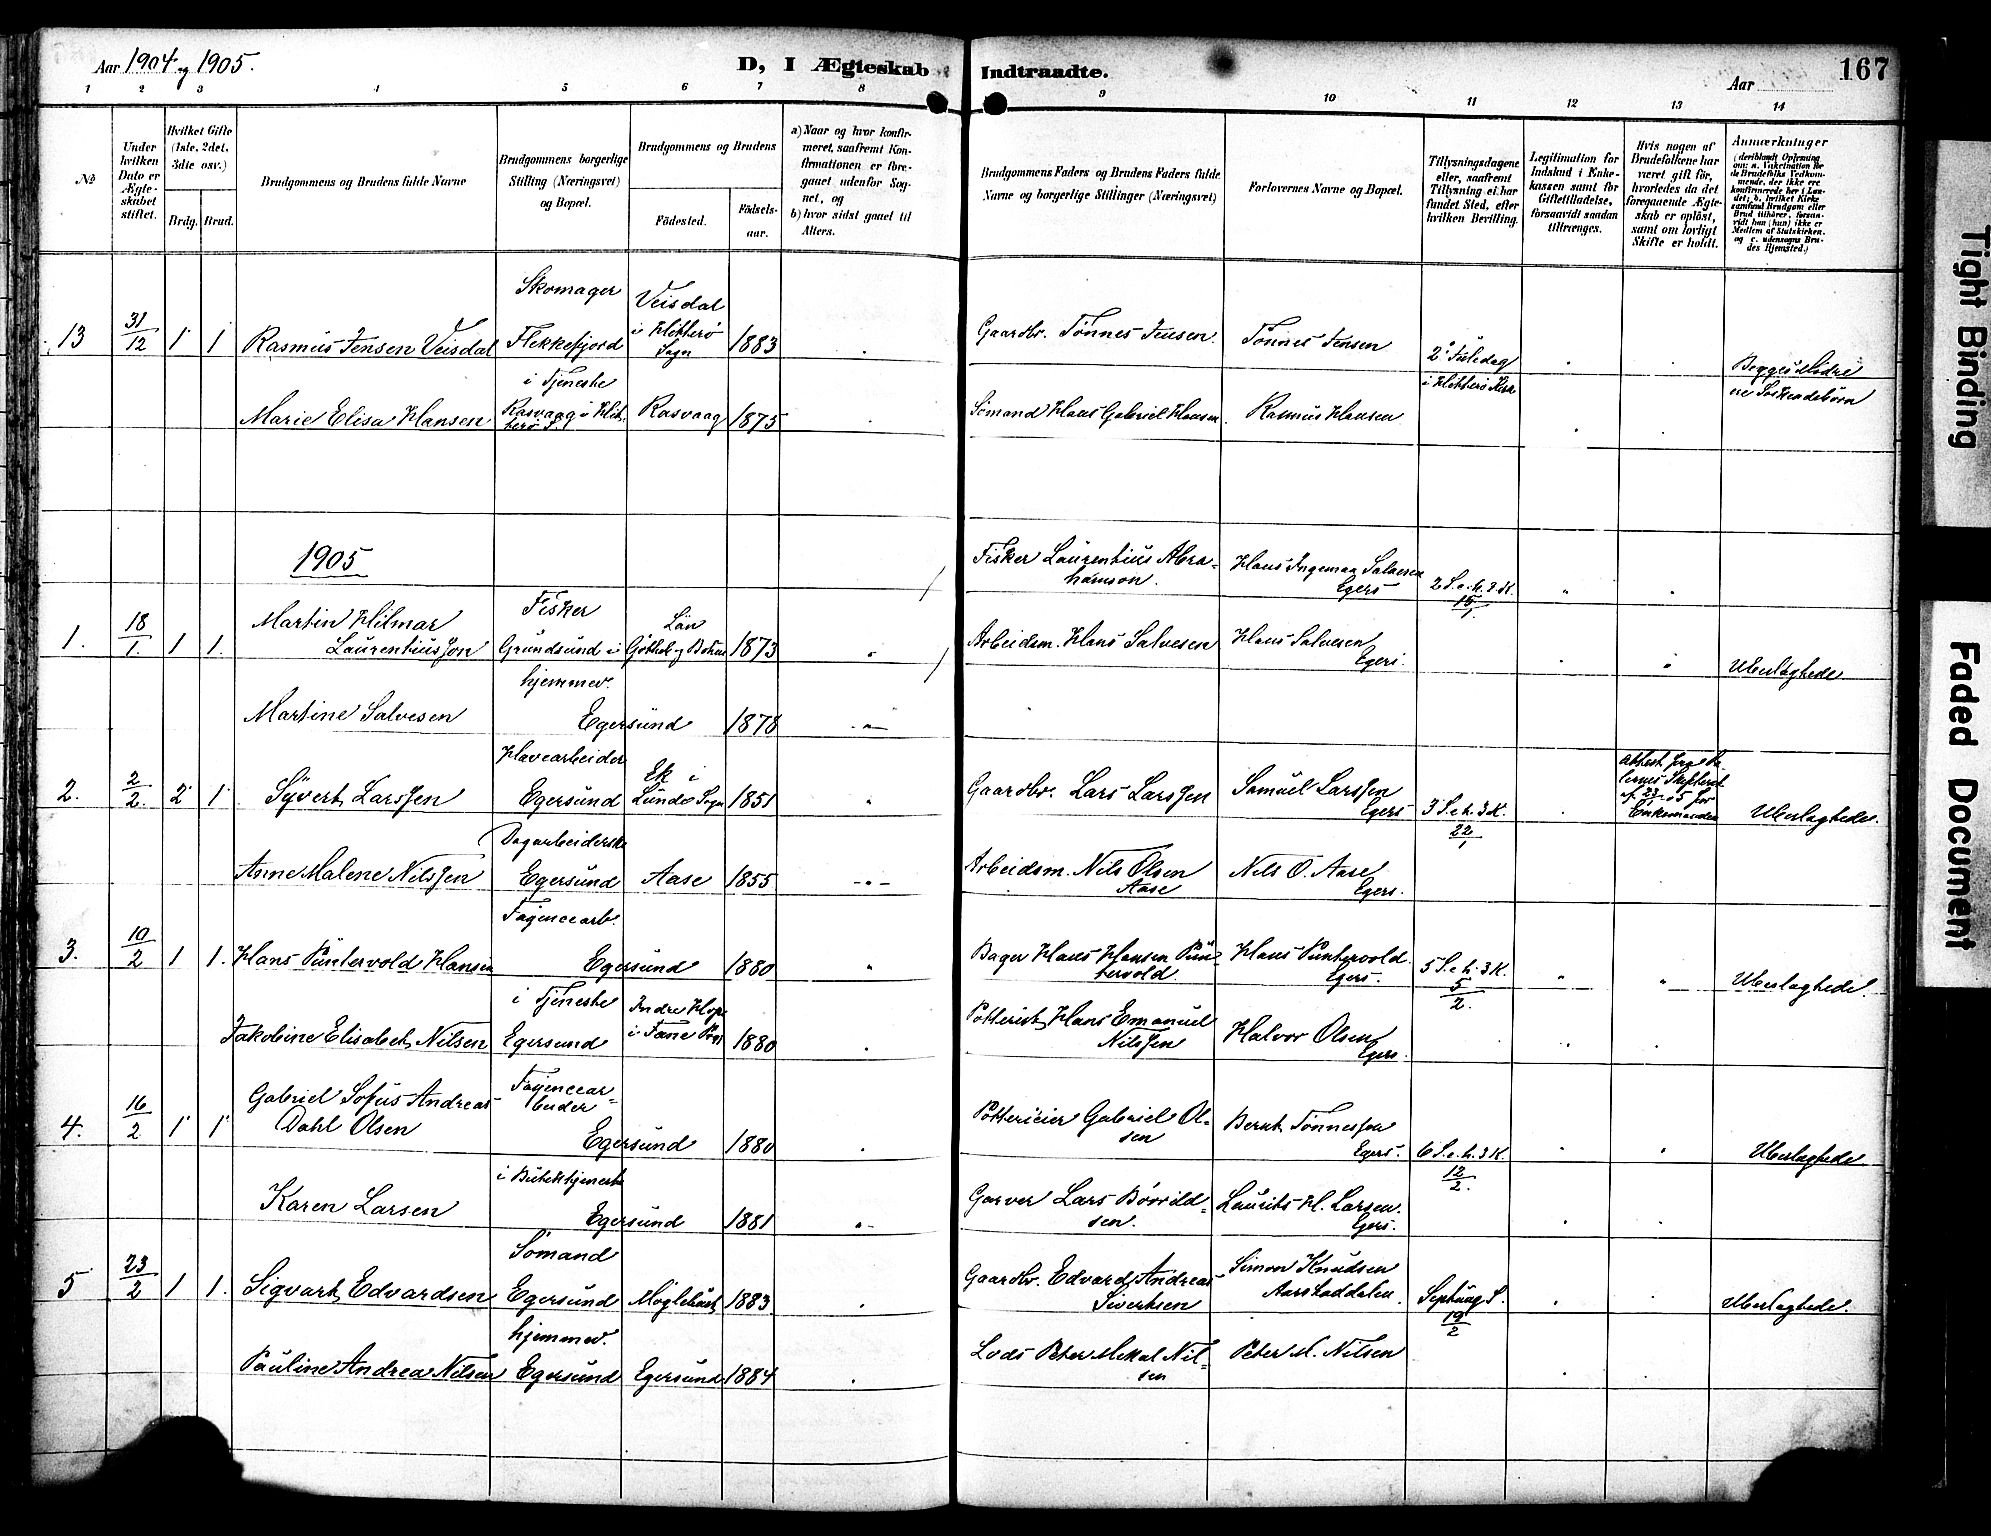 Aar 1904 og 1905.
D, I Ægteskab Indtraadte.
Aar
167
1 2 3 4 5 6 7 8 9 10 11 12 13 14
No
Under hvilken Dato er Ægteskabet stiftet.
Hvilket Gifte (1ste, 2det, 3die osv.)
Brdg. Brud.
Brudgommens og Brudens fulde Navne
Brudgommens borgerlige Stilling (Næringsvei) og Bopæl.
Brudgommens og Brudens
Födested.
Födselsaar.
a) Naar og hvor konfirmeret, saafremt Konfirmationen er foregaaet udenfor Sognet, og
b) hvor sidst gaaet til Alters.
Brudgommens Faders og Brudens Faders fulde Navne og borgerlige Stillinger (Næringsvei)
Forlovernes Navne og Bopæl.
Tillysningsdagene eller, saafremt Tillysning ei har fundet Sted, efter hvilken Bevilling.
Legitimation for Indskud i Enkekassen samt for Giftetilladelse, forsaavidt saadan tiltrænges.
Hvis nogen af Brudefolkene har været gift för, hvorledes da det foregaaende Ægteskab er oplöst, samt om lovligt Skifte er holdt.
Anmærkninger
(deriblandt Oplysning om: a. Vakcination for de Brudefolks Vedkommende, der ikke ere konfirmerede her i Landet; b. hvilket Kirkesamfund Brudgom eller Brud tilhörer, forsaavidt han (hun) ikke er Medlem af Statskirken, og c. udensogns Brudes Hjemsted.)
13 31/12 1 1 Rasmus Jensen Veisdal Skomager Flekkefjord Veisdal i Hitterø Sogn 1883 Gaardbr. Tønnes Jensen. Tønnes Jensen 2' Juledag i Hitterø Kirke Begges Mødre ere Søskendebørn
Marie Elisa Hansen i Tjeneste Rasvaag i Hitterø S. Rasvaag 1875 Sømand Hans Gabriel Hansen Rasmus Hansen
1905
1. 18/1. 1 1. Martin Hilmar Laurentiussson Fisker Grundsund i Län Göteb. og Bohus 1873 Fisker Laurentius Abrahamson. Hans Ingeman Salvesen Egers 2 S. e. H. 3 K. 15/1 Uberlagtede
Martine Salvesen hjemmev. Egersund 1878 Arbeidsm. Hans Salvesen Hans Salvesen Egers.
2. 2/2. 2 1 Syvert Larssen Havearbeider Egersund Ek i Lunde Sogn 1851 Gaardbr. Lars Larssen Samuel Larssen Egers 3 S. e. h. 3 K. 22/1 Attest af 23/1 05 for Enkemanden Uberlagtede.
Anne Malene Nilssen Dagarbeiderske Egersund Aase 1855 Arbeidsm. Nils Olsen Aase Nils O. Aase Egers.
3. 10/2 1 1. Hans Puntervold Hansen Fayencearb. Egersund 1880 Bager Hans Hansen Puntervold Hans Puntervold Egers. 5 S. e. h. 3 K. 5/2. Uberlagtede.
Jakobine Elisabet Nilsen i Tjeneste Egersund i Fane 1880 Potterist Hans Emanuel Nilssen Halvor Olsen Egers.
4. 16/2 1 1 Gabriel Sofus Andreas Dahl Olsen Fayencearbeider Egersund 1880 Potterieier Gabriel Olsen Bernt Tønnessen Egers. 6 S. e. h. 3 K. 12/2. Uberlagtede
Karen Larsen i Butiktjeneste Egersund 1881 Garver Lars Børrildsen. Laurits H. Larsen. Egers.
5 23/2 1 1. Sigvart Edvardsen Sømand Egersund Møglehust 1883 Gaardbr. Edvard Andreas Sivertsen Simon Knudsen Aarstaddalen. Septuag S. 19/2 Uberlagtede.
Pauline Andrea Nilsen hjemmev. Egersund Egersund 1884 Lods Peter Mikal Nilsen Peter M. Nilsen
Tight Binding
Faded Document